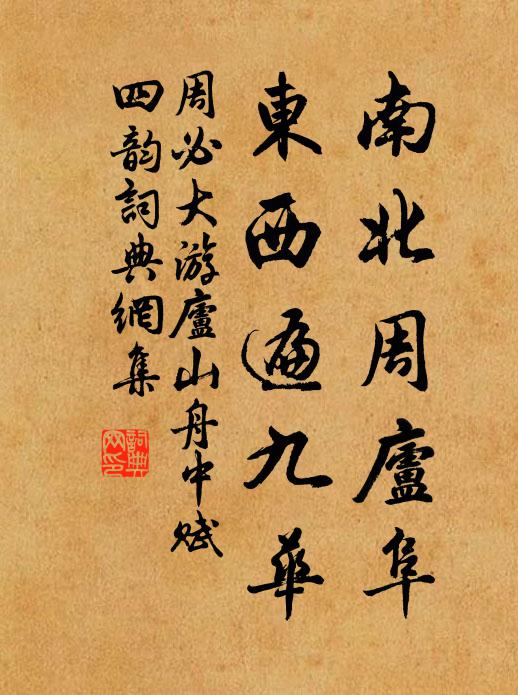 南北周廬阜
東西遍九華
周必大游廬山舟中賦
四韵詞典網集
詞典网印